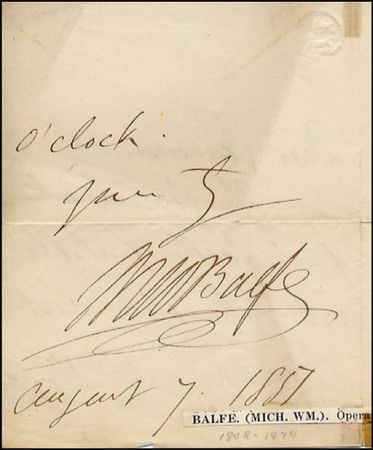 o'clock.
MWBalfe
august 7. 1857
BALFE. (MICH. WM.). Opera
1808-1870